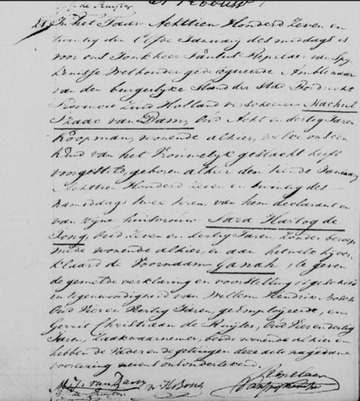 In het Jaar Achttien Honderd Zeven en
twintig den Januarij des middags is
voor ons Jonkheer Pompejus Repelaer van Spij
kenisse Wethouder gedelegeerde Ambtenaar
van den burgerlijke Stand der Stad Dordrecht
Provincie Zuid Holland verscheenen Machiel
Izaac van Dam, Oud Acht en dertig Jaren
Koopman, wonende alhier, welke ons een
kind van het Vrouwelijk geslacht heeft
voorgesteld, geboren alhier den Januarij
Achttien Honderd zeven en twintig des
namiddags twee uren, van hem declarant en
van zijne huisvrouw Sara Hartog de
Jong, Oud zeven en dertig Jaren zonder beroep
mede wonende alhier, en aan hetwelk hij ver
klaard de Voornaam te geven
de gemelde verklaring en voorstelling is geschied
in tegenwoordigheid van Willem Hendrik
Oud Vier en Veertig Jaren, geëmployeerde, en
Gerrit Christiaan de Ruijter, Oud Vier en dertig
Jaren, Zaakwaarnemer, beide wonende alhier en
hebben de Vader en de getuigen deze acte na gedane
voorlezing nevens ons onderteekend.
Repelaer
van Dam
de Ruijter